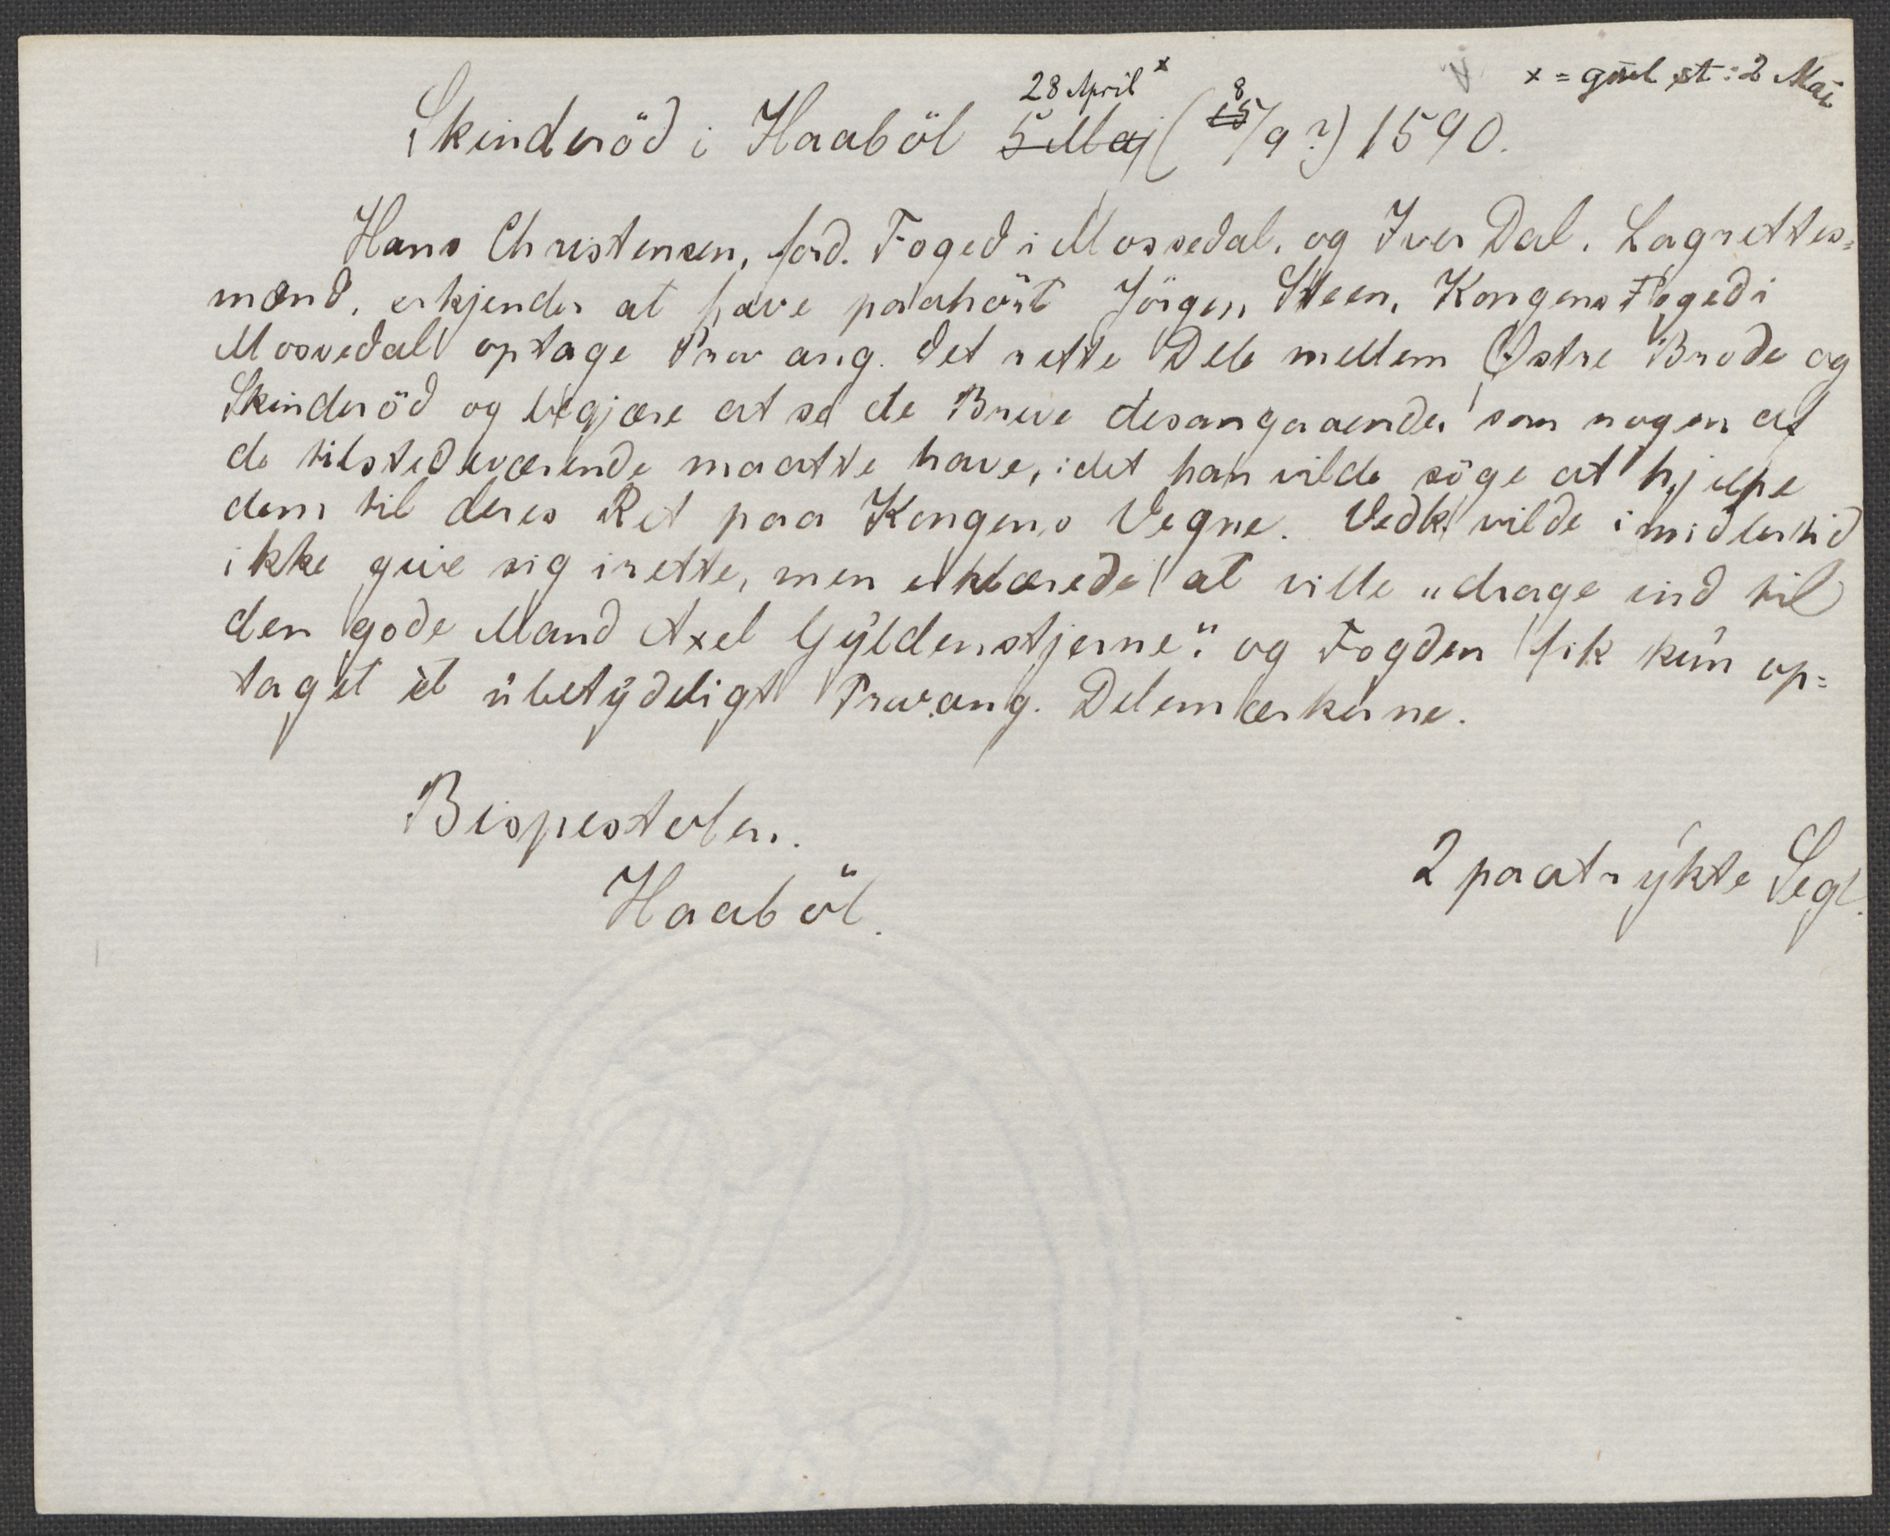 x = gml st: 2 Mai
28 April x 8
Skinderöd i Haaböl 5 Maj (15/9?) 1590.
Hans Christensen, ford. Foged i Mossedal, og Iver Dal. Lagrettes=
mænd, erkjender at have paahört Jörgen Steen, Kongens Foged i
Mosvedal optage Prov ang. det rette Dele mellem Østre Brode og
Skinderöd og begjære at se de Breve desangaaende, som nogen af
de tilstedeværende maatte have, idet han vilde söge at hjelpe
dem til deres Ret paa Kongens Vegne. Vedk. vilde imidlertid
ikke give sig irette, men erklærede at ville "drage ind til
den gode Mand Axel Gyldenstjerne", og Fogden fik kun op=
taget et ubetydeligt Prov ang. Delemærkerne.
Bispestolen.
2 paatrykte Segl.
Haaböl.